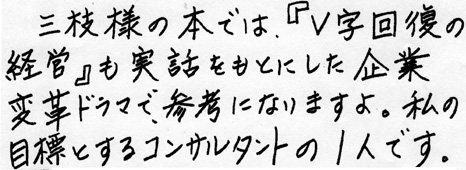 三枝様の本では、『V字回復の
経営』も実話をもとにした企業
変革ドラマで、参考になりますよ。私の
目標とするコンサルタントの1人です。